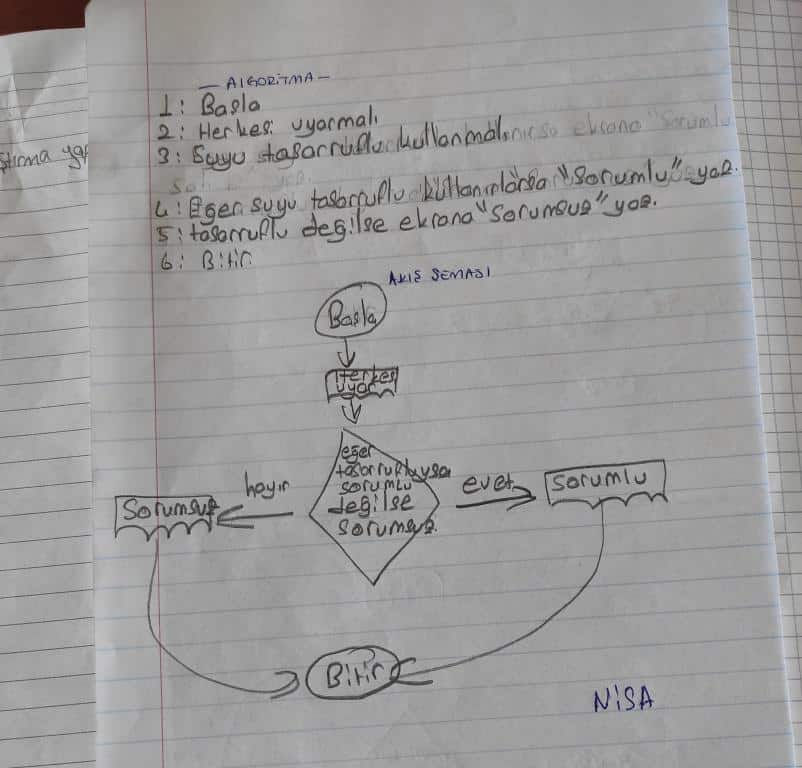 ştırma yap
- ALGORİTMA -
1: Başla
2: Herkesi uyarmalı
3: Suyu tasarruflu kullanmalı
4: Eğer suyu tasarruflu kullanırlarsa "Sorumlu" yaz.
5: tasarruflu değilse ekrana "Sorumsuz" yaz.
6: Bitir
AKIŞ ŞEMASI
Başla
Herkesi
uyar
eğer
tasarrufluysa
sorumlu
değilse
sorumsuz.
hayır
evet
Sorumsuz
Sorumlu
Bitir
NiSA